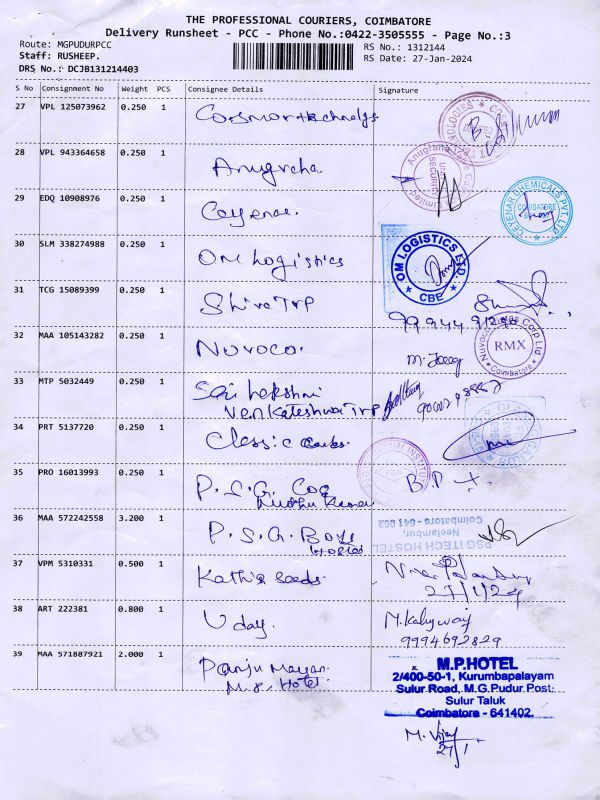 THE PROFESSIONAL COURIERS, COIMBATORE
Delivery Runsheet - PCC - Phone No.:0422-3505555 - Page No.:3
Route: MGPUDURPCC
RS No.: 1312144
Staff: RUSHEEP.
RS Date: 27-Jan-2024
DRS No.: DCJB131214403
S No Consignment No Weight PCS Consignee Details Signature
27 VPL 125073962 0.250 1
28 VPL 943364658 0.250 1 Anugraha
29 EDQ 10908976 0.250 1 Ceyenar. CEYENAR CHEMICALS PVT. LTD. COIMBATORE
30 SLM 338274988 0.250 1 OM Logistics OM LOGISTICS LTD. CBE
31 TCG 15089399 0.250 1 Shiva TRP
32 MAA 105143282 0.250 1 Nuvoco. RMX Coimbatore
33 MTP 5032449 0.250 1 Sri Lekshmi
Venkateshwar TRP
34 PRT 5137720 0.250 1 Classic
35 PRO 16013993 0.250 1 P.S.G. B.P
36 MAA 572242558 3.200 1 P.S.G. Boys
Hostel
PSG iTECH HOSTEL
Neelambur,
Coimbatore - 641 062
37 VPM 5310331 0.500 1 Kathir Seeds.
27/1/24
38 ART 222381 0.800 1 Uday.
9994692829
39 MAA 571887921 2.000 1
M.P. Hotel
M.P.HOTEL
2/400-50-1, Kurumbapalayam
Sulur Road, M.G.Pudur Post.
Sulur Taluk
Coimbatore - 641402.
M. Vijay
27/1